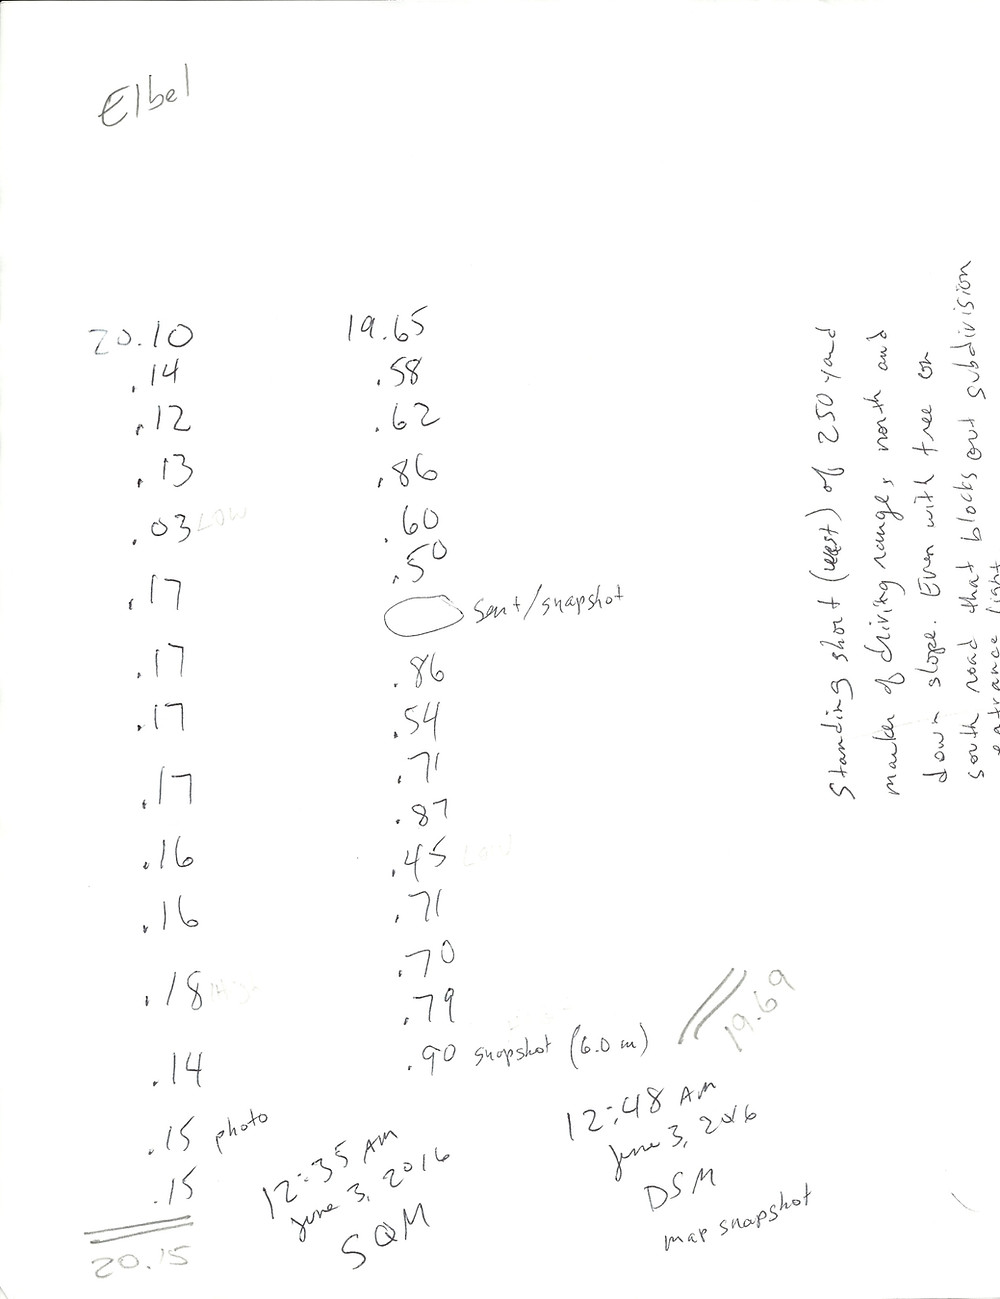 Elbel
20.10
.14
.12
.13
.03 LOW
.17
.17
.17
.17
.16
.16
.18 High
.14
.15 photo
.15
20.15
12:35 AM
June 3, 2016
SQM
19.65
.58
.62
.86
.60
.50
Sent/snapshot
.86
.54
.71
.87
.45 LOW
.71
.70
.79
.90 snapshot (6.0 m)
19.69
12:48 AM
June 3, 2016
DSM
map snapshot
Standing short (west) of 250 yard
marker of driving range, north and
down slope. Even with tree on
south road that blocks out subdivision
entrance light